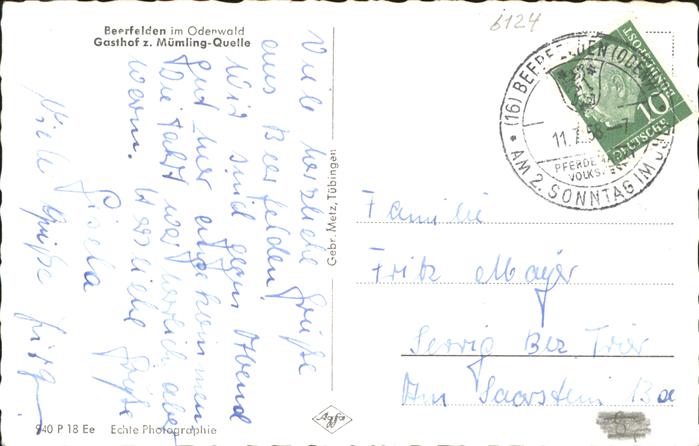 Beerfelden im Odenwald
Gasthof z. Mümling-Quelle
6124
Viele herzliche Grüße
aus Beerfelden!
Wir sind gegen Abend
gut hier angekommen
Die Fahrt war herrlich aber
warm. Herzliche Grüße
Gisela
Viele Grüße
Gebr. Metz, Tübingen
(16) BEERFELDEN (ODENW)
11.7.58-7
PFERDEMARKT
VOLKSFEST
AM 2. SONNTAG IM JULI
10
DEUTSCHE
BUNDESPOST
Familie
Fritz Mayer
Serrig Bez Trier
Am Saarstein 13a
940 P 18 Ee Echte Photographie
Agfa